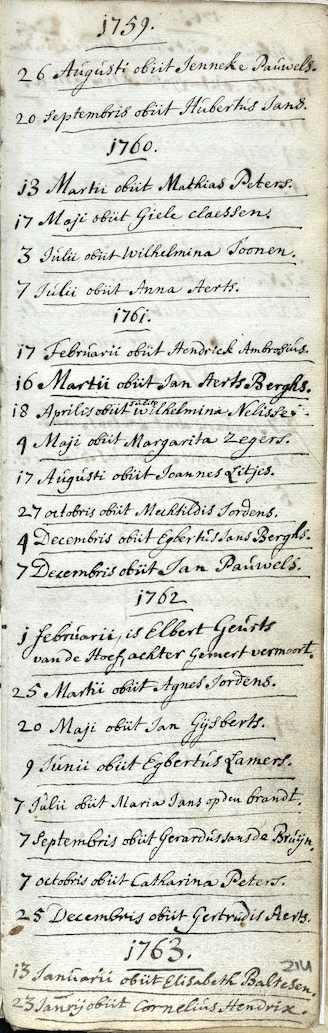 1759.
26 Augusti obiit Jenneke Pauwels.
20 Septembris obiit Hubertus Jans.
1760.
13 Martii obiit Mathias Peters.
17 Maji obiit Giele Claessen.
3 Julii obiit Wilhelmina Toonen.
7 Julii obiit Anna Aerts.
1761.
17 Februarii obiit Hendrick Ambrosius.
16 Martii obiit Jan Aerts Berghs.
18 Aprilis obiit Wilhelmina Nelisse
4 Maji obiit Margarita Zegers.
17 Augusti obiit Joannes Litjes.
27 octobris obiit Mechtildis Jordens.
4 Decembris obiit Egbertus Jans Berghs.
7 Decembris obiit Jan Pauwels.
1762
1 februarii, is Elbert Geurts
van de Hoef, achter Gemert vermoort.
25 Martii obiit Agnes Jordens.
20 Maji obiit Jan Gijsberts.
9 Junii obiit Egbertus Lamers.
7 Julii obiit Maria Jans op den brandt.
7 Septembris obiit Gerardus Jans de Bruijn.
7 octobris obiit Catharina Peters.
25 Decembris obiit Gertrudis Aerts.
1763.
214
13 Januarii obiit Elisabeth Baltesen.
23 Januarij obiit Cornelius Hendrix.